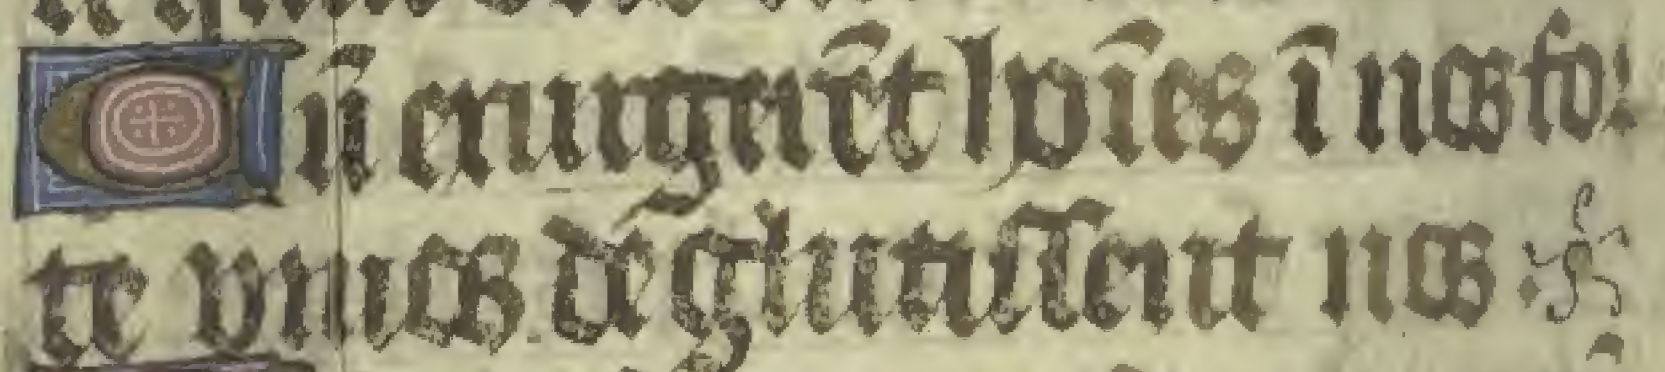 Cū exurgerēt hoīes ī nos for
te viuos deglutissent nos